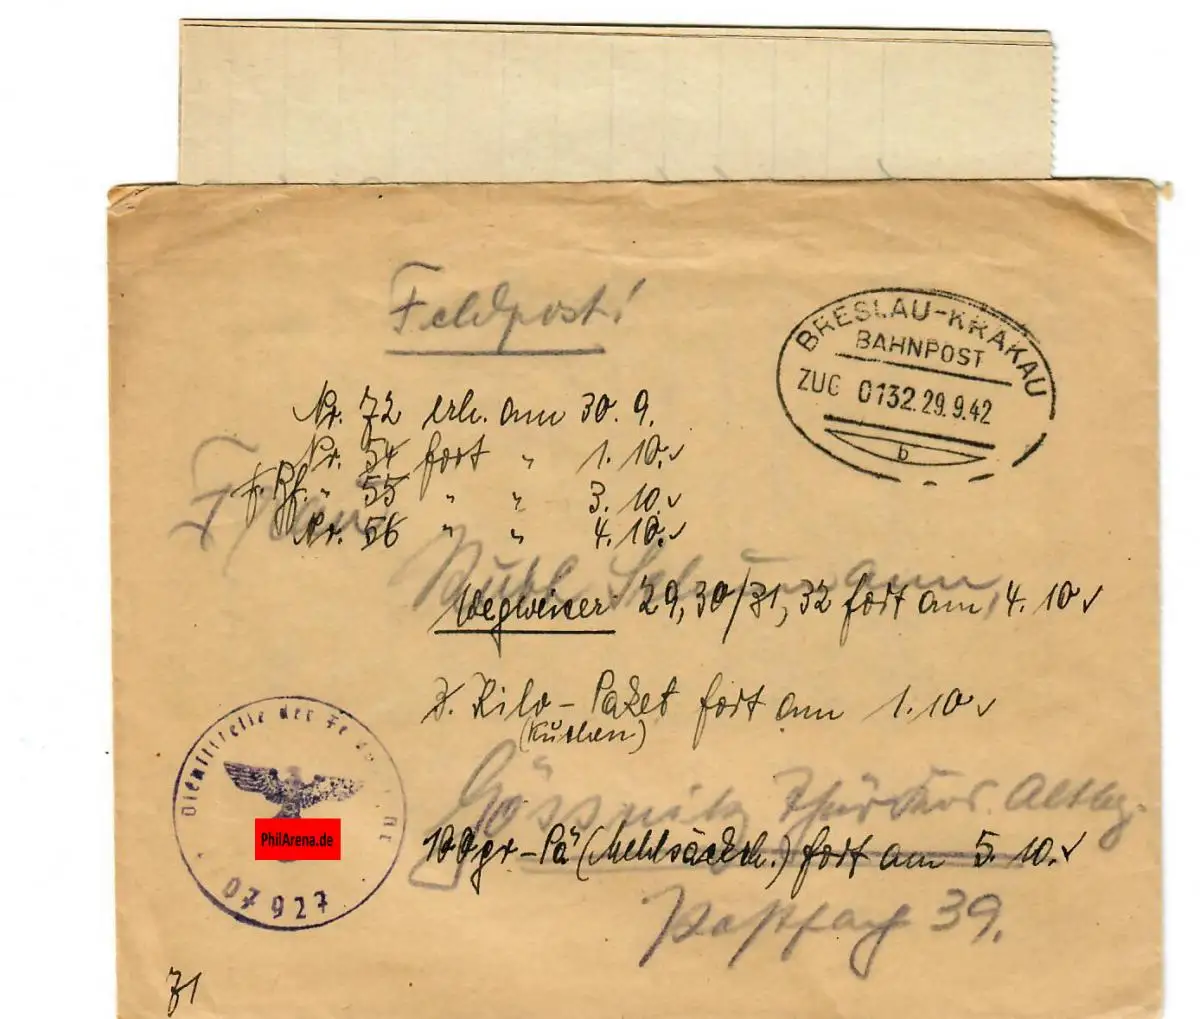 Feldpost!
BRESLAU-KRAKAU
BAHNPOST
ZUG 0132.29.9.42
b
Nr. 72 erh. am 30.9.
Nr. 54 fort " 1.10.✓
" 55 " " 3.10.✓
Nr. 56 " " 4.10.✓
Frau
Wegweiser 29,30/31,32 fort am 4.10✓
Kilo-Paket fort am 1.10✓
(Kuchen)
Dienststelle der
PhilArena.de
07927
Gössnitz Altbg.
100gr-Pä (Mehlsäckch.) fort am 5.10.✓
Postfach 39.